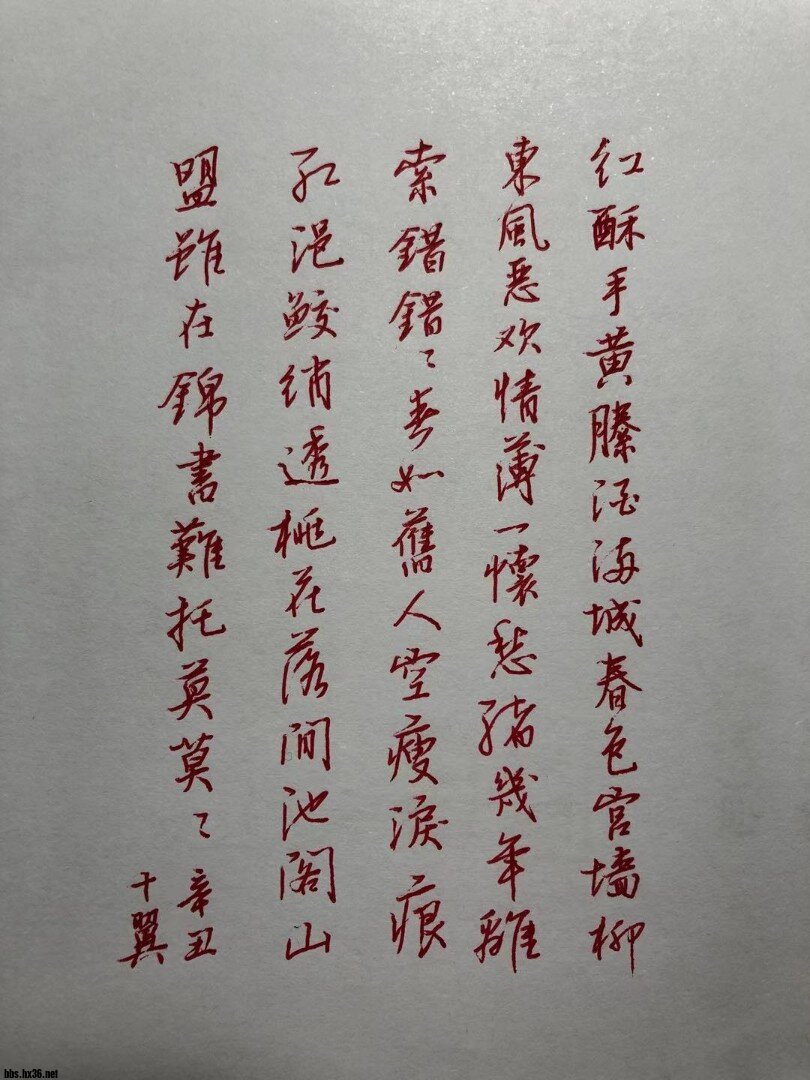 红酥手黄縢酒满城春色宫墙柳
東風恶欢情薄一懷愁绪幾年離
索錯錯〻春如舊人空瘦淚痕
红浥鲛绡透桃花落间池阁山
盟雖在錦書難托莫莫〻
辛丑
十翼
bbs.hx36.net